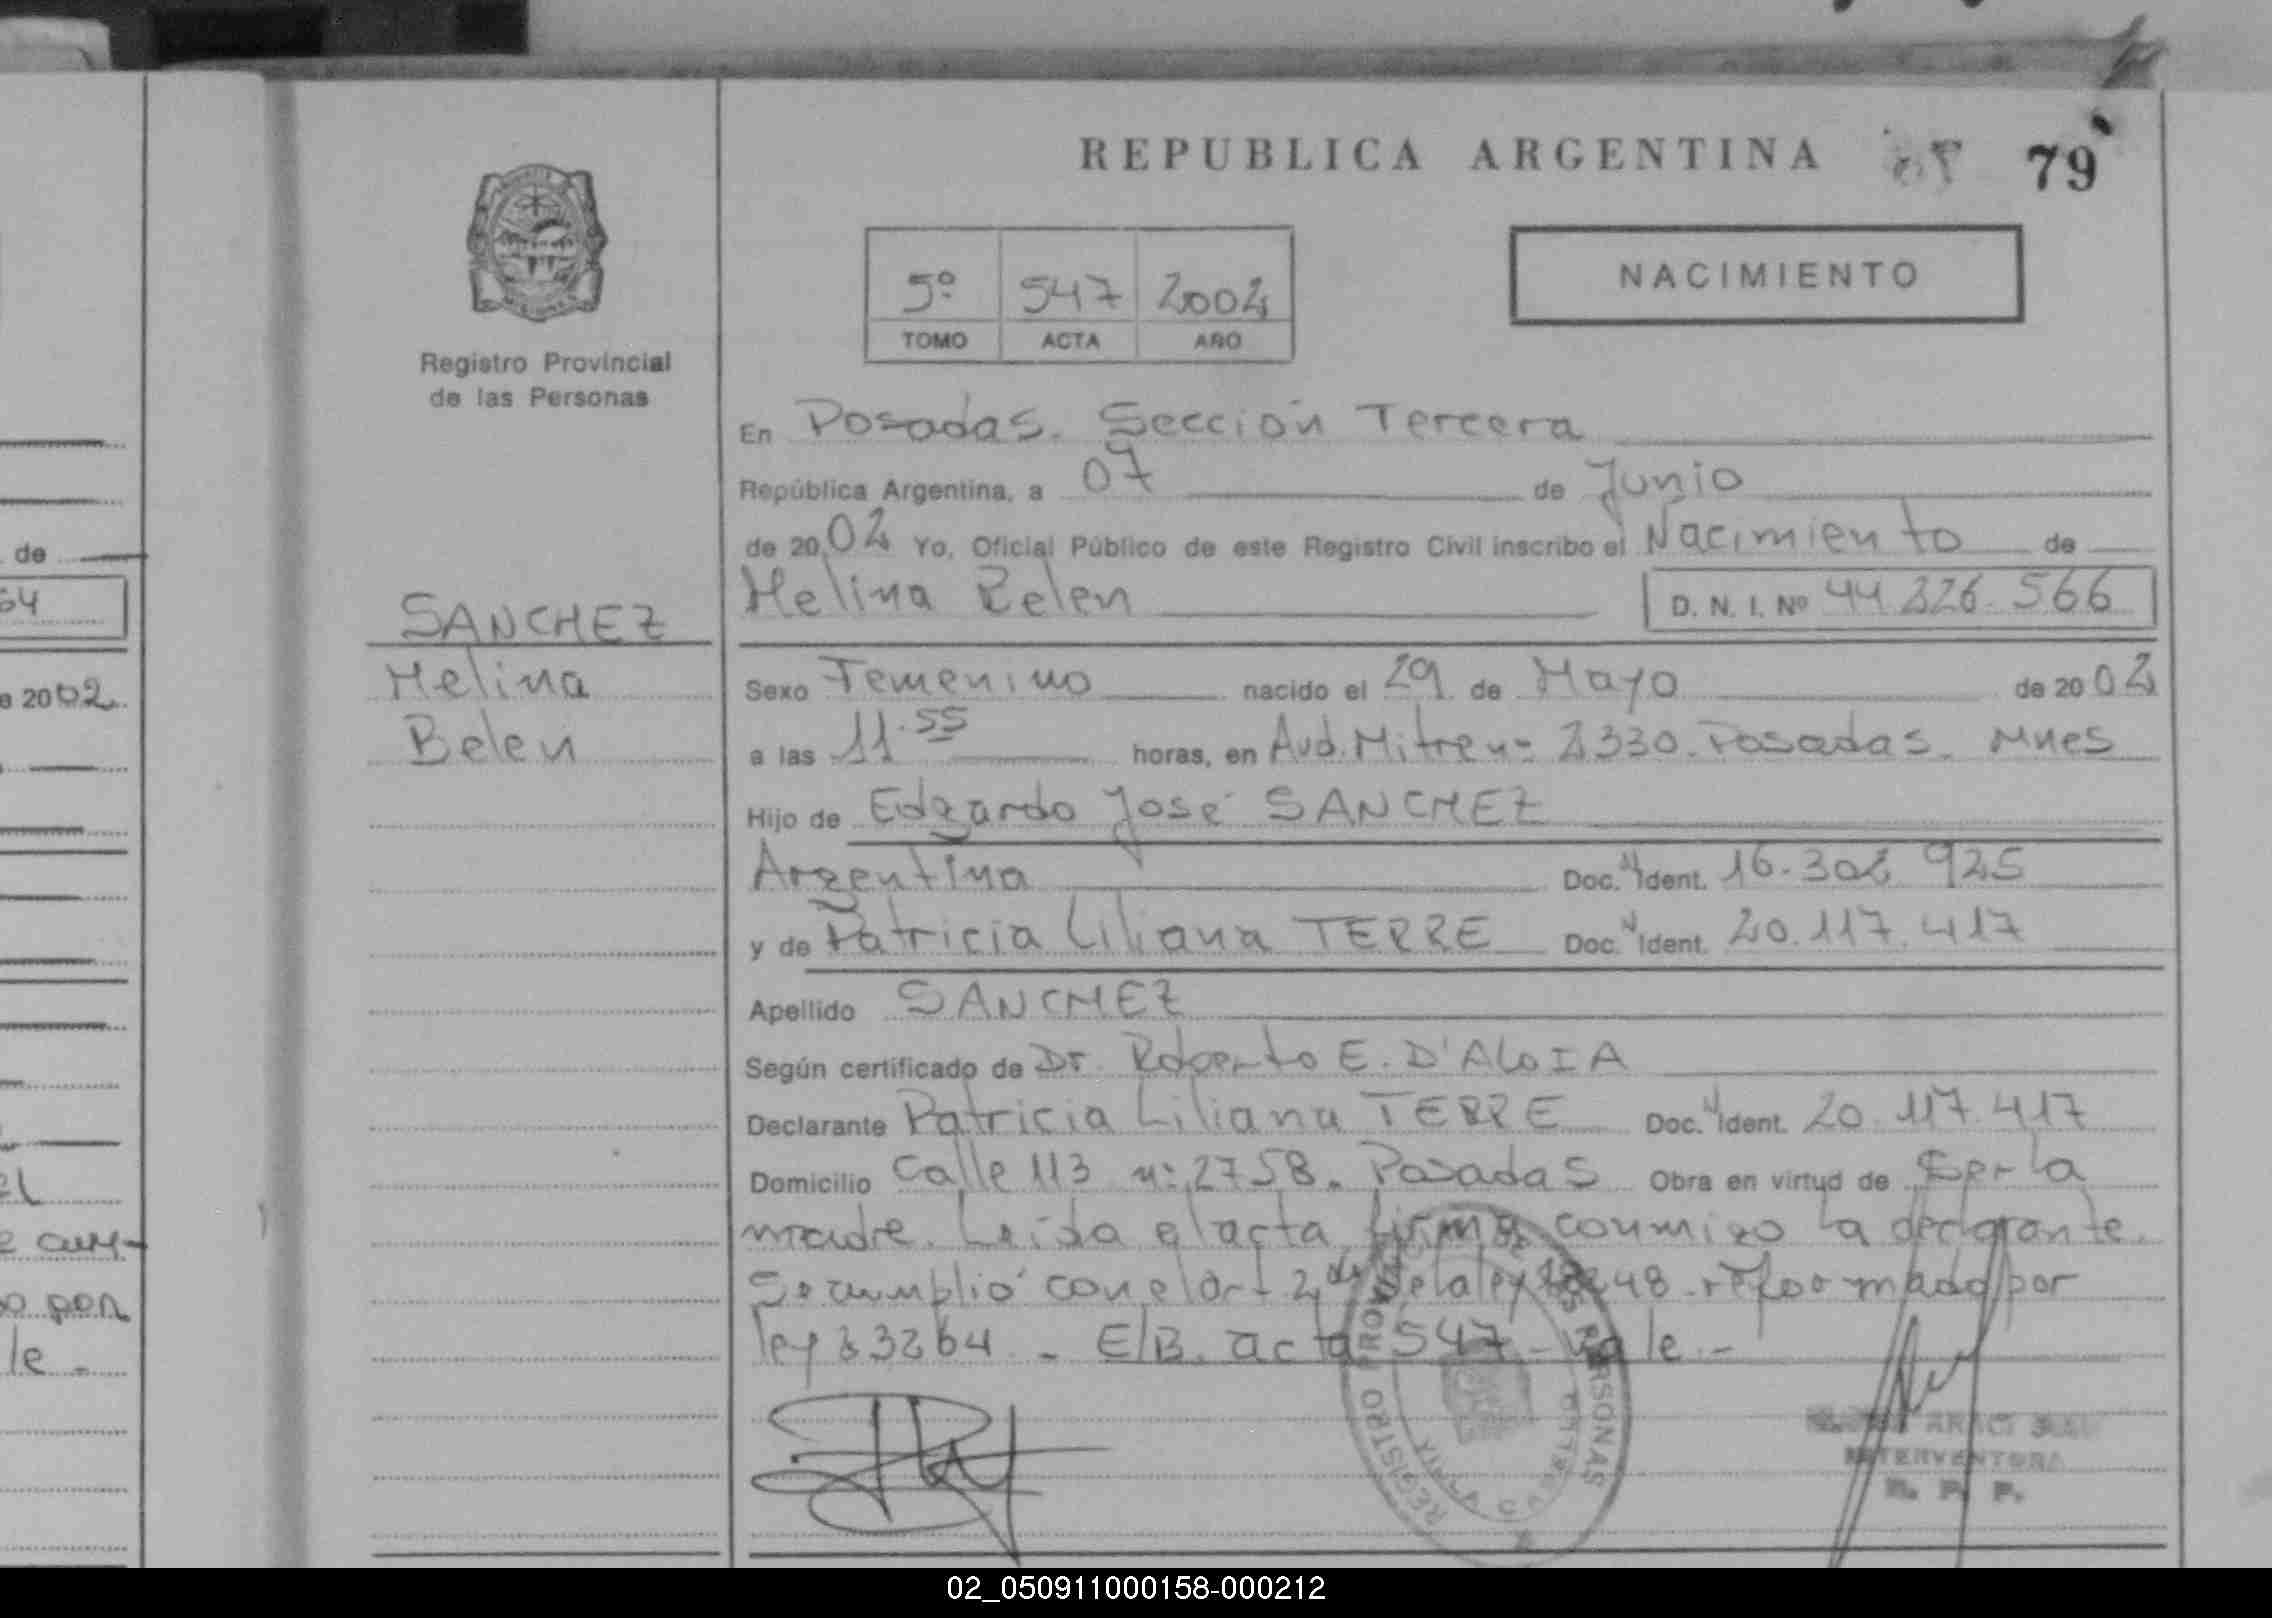 REPUBLICA ARGENTINA 79
5º 547 2002
TOMO ACTA AÑO
NACIMIENTO
Registro Provincial
de las Personas
En Posadas. Sección Tercera
República Argentina, a 07 de Junio
de 2002 Yo, Oficial Público de este Registro Civil inscribo el Nacimiento de
Melina Belen D. N. I. Nº 44 226.566
SANCHEZ
Melina
Belen
Sexo Femenino nacido el 29 de Mayo de 2002
a las 11.55 horas, en Avd. Mitre nº 2330. Posadas. Mnes
Hijo de Edgardo José SANCHEZ
Argentina Doc. Ident. 16.302 925
y de Patricia Liliana TERRE Doc. Ident. 20.117.417
Apellido SANCHEZ
Según certificado de Dr. Roberto E. D'ALOIA
Declarante Patricia Liliana TERRE Doc. Ident. 20.117.417
Domicilio Calle 113 nº 2758. Posadas Obra en virtud de Ser la
madre. Leida el acta firma conmigo la declarante.
Se cumplió con el art 2 de la ley 18248 reformado por
ley 23264 - E/B. acta 547 - vale.-
REGISTRO PROVINCIAL DE LAS PERSONAS
INTERVENTORA
R. P. P.
de
64
2002.
de
por
le -
02_050911000158-000212